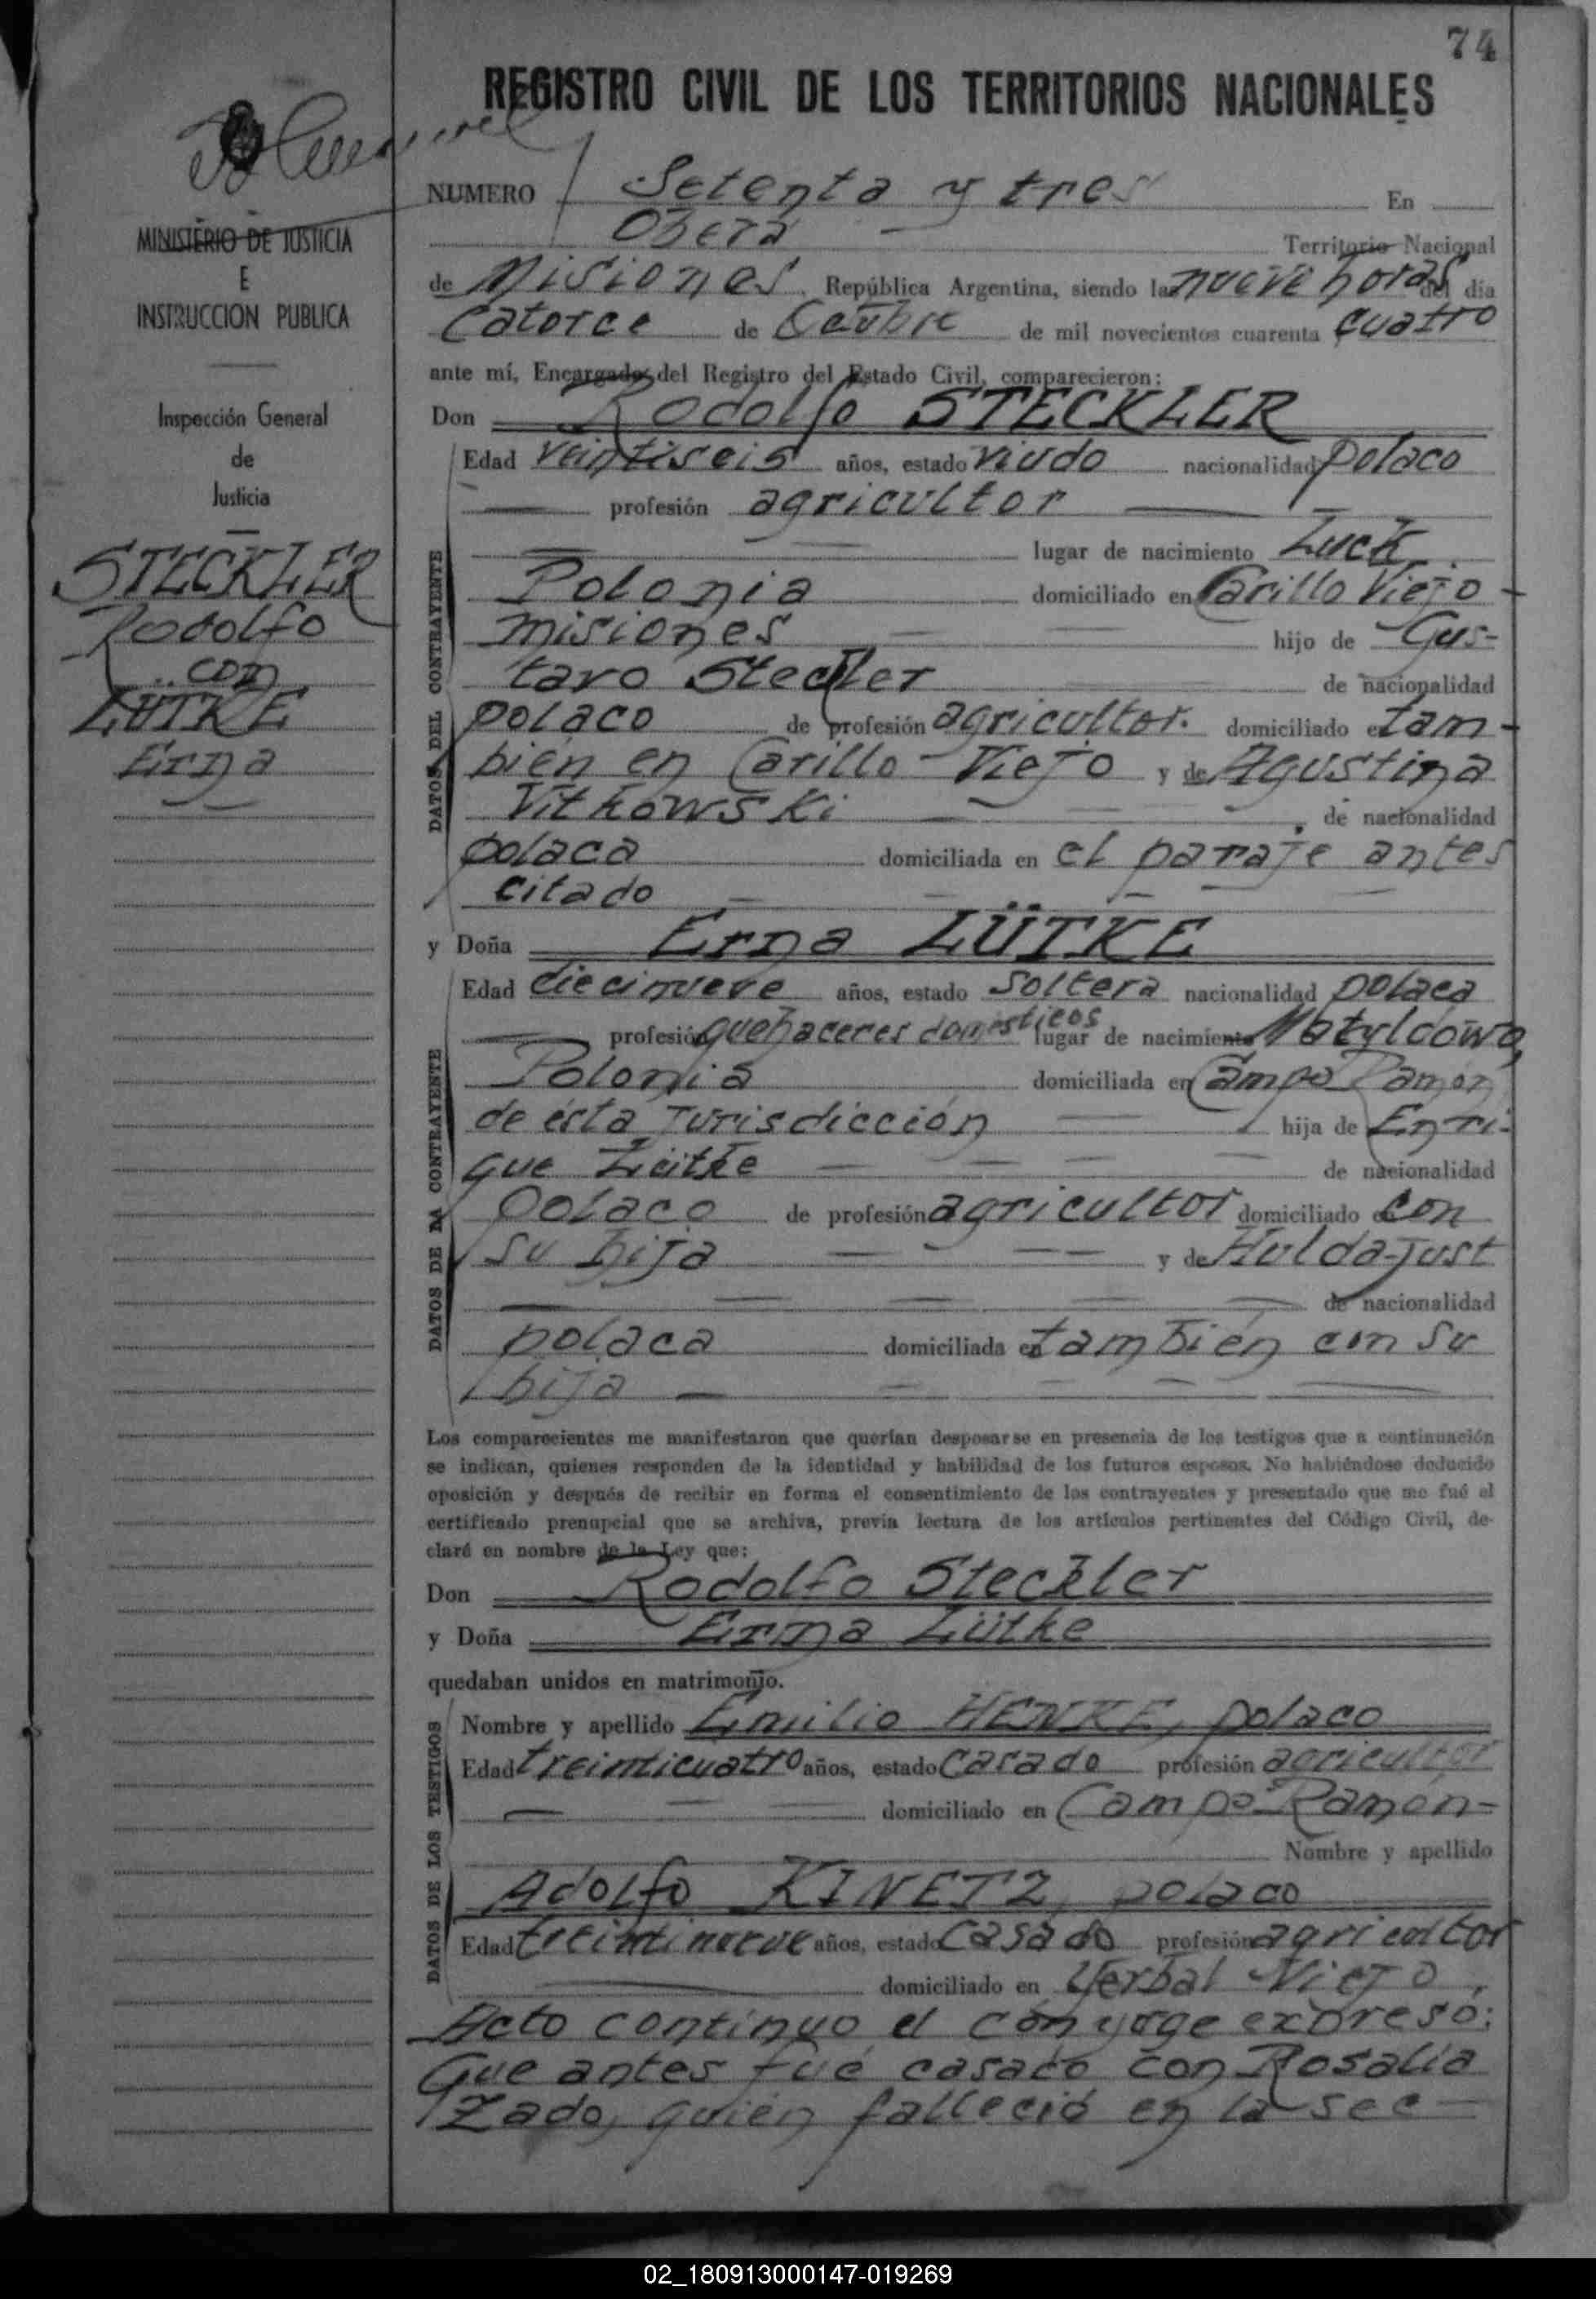 74
REGISTRO CIVIL DE LOS TERRITORIOS NACIONALES
MINISTERIO DE JUSTICIA
E
INSTRUCCION PUBLICA
Inspección General
de
Justicia
STECKLER
Rodolfo
con
LÜTKE
Erna
NUMERO Setenta y tres En
Oberá Territorio Nacional
de Misiones, República Argentina, siendo las nueve horas del día
Catorce de Octubre de mil novecientos cuarenta cuatro
ante mí, Encargado del Registro del Estado Civil, comparecieron:
Don Rodolfo STECKLER
DATOS DEL CONTRAYENTE
Edad veintiseis años, estado viudo nacionalidad polaco
profesión agricultor
lugar de nacimiento Luck
Polonia domiciliado en Carillo Viejo
misiones hijo de Gus-
tavo Steckler de nacionalidad
polaco de profesión agricultor. domiciliado en tam-
bién en Carillo-Viejo y de Agustina
Vithowski de nacionalidad
polaca domiciliada en el paraje antes
citado
y Doña Erna LÜTKE
DATOS DE LA CONTRAYENTE
Edad diecinueve años, estado soltera nacionalidad polaca
profesión quehaceres domésticos lugar de nacimiento Matyldówa,
Polonia domiciliada en Campo Ramon
de ésta Jurisdicción hija de Enri-
que Lütke de nacionalidad
polaco de profesión agricultor domiciliado en con
su hija y de Hulda Just
de nacionalidad
polaca domiciliada en también con su
hija
Los comparecientes me manifestaron que querían desposarse en presencia de los testigos que a continuación
se indican, quienes responden de la identidad y habilidad de los futuros esposos. No habiéndose deducido
oposición y después de recibir en forma el consentimiento de los contrayentes y presentado que me fué el
certificado prenupcial que se archiva, previa lectura de los artículos pertinentes del Código Civil, de-
claré en nombre de la Ley que:
Don Rodolfo Steckler
y Doña Erna Lütke
quedaban unidos en matrimonio.
DATOS DE LOS TESTIGOS
Nombre y apellido Emilio HENKE, polaco
Edad treinticuatro años, estado casado profesión agricultor
domiciliado en Campo-Ramón-
Nombre y apellido
Adolfo KINETZ, polaco
Edad treintinueve años, estado casado profesión agricultor
domiciliado en Yerbal Viejo.
Acto continuo el cónyuge expresó:
Que antes fué casado con Rosalia
Zado, quién falleció en la sec-
02_180913000147-019269